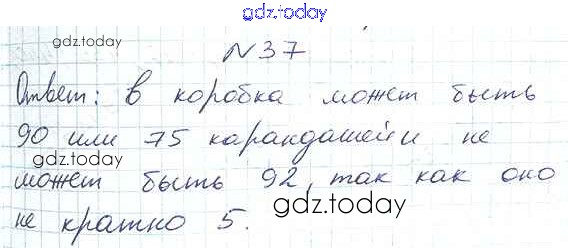 gdz.today
gdz.today
N37
Ответ: в коробка может быть
90 или 75 карандашей и не
gdz.today
может быть 92, так как оно
gdz.today
не кратно 5.